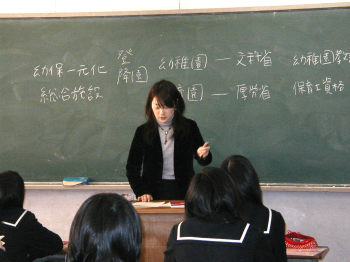 幼保一元化
総合施設
登
降園
幼稚園 — 文科省
園 — 厚労省
幼稚園教
保育士資格